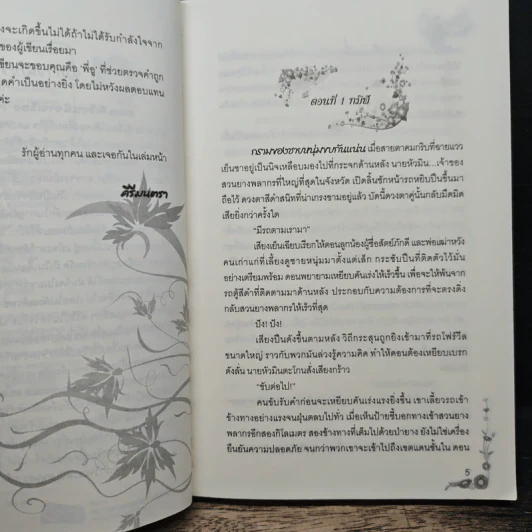 งจะเกิดขึ้นไม่ได้ถ้าไม่ได้รับกำลังใจจาก
ของผู้เขียนเรื่อยมา
เขียนจะขอบคุณคือ 'พี่จู' ที่ช่วยตรวจคำถูก
ดคำเป็นอย่างยิ่ง โดยไม่หวังผลตอบแทน
ค่ะ
รักผู้อ่านทุกคน และเจอกันในเล่มหน้า
คีรีมนตรา
ตอนที่ 1
กรามของชายหนุ่มขบกันแน่น เมื่อสายตาคมกริบที่ฉายแวว
เย็นชาอยู่เป็นนิจเหลือบมองไปที่กระจกด้านหลัง นายหัวมีน...เจ้าของ
สวนยางพลากรที่ใหญ่ที่สุดในจังหวัด เปิดลิ้นชักหน้ารถหยิบปืนขึ้นมา
ถือไว้ ดวงตาสีดำสนิทที่น่าเกรงขามอยู่แล้ว บัดนี้ดวงตาคู่นั้นกลับมืดมิด
เสียยิ่งกว่าครั้งใด
"มีรถตามเรามา"
เสียงเย็นเยียบเรียกให้ดอนลูกน้องผู้ซื่อสัตย์ภักดี และพ่อเฒ่าหวัง
คนเก่าแก่ที่เลี้ยงดูชายหนุ่มมาตั้งแต่เล็ก กระชับปืนที่ติดตัวไว้มั่น
อย่างเตรียมพร้อม ดอนพยายามเหยียบคันเร่งให้เร็วขึ้น เพื่อจะให้พ้นจาก
รถตู้สีดำที่ติดตามมาด้านหลัง ประกอบกับความต้องการที่จะตรงดิ่ง
กลับสวนยางพลากรให้เร็วที่สุด
ปัง! ปัง!
เสียงปืนดังขึ้นตามหลัง วิถีกระสุนถูกยิงเข้ามาที่รถโฟร์วีล
ขนาดใหญ่ ราวกับพวกมันล่วงรู้ความคิด ทำให้ดอนต้องเหยียบเบรก
ดังลั่น นายหัวมีนตะโกนสั่งเสียงกร้าว
"ขับต่อไป!"
คนขับรับคำก่อนจะเหยียบคันเร่งแรงยิ่งขึ้น เขาเลี้ยวรถเข้า
ข้างทางอย่างแรงจนฝุ่นตลบไปทั่ว เมื่อเห็นป้ายชี้บอกทางเข้าสวนยาง
พลากรอีกสองกิโลเมตร สองข้างทางที่เต็มไปด้วยป่ายาง ยังไม่ใช่เครื่อง
ยืนยันความปลอดภัย จนกว่าพวกเขาจะเข้าไปถึงเขตแดนชั้นใน ดอน
5